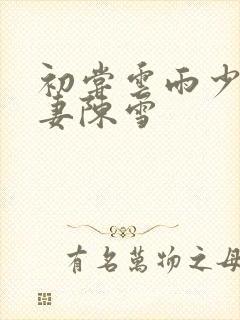 初尝雲雨少
妻陳雪
有名萬物之母